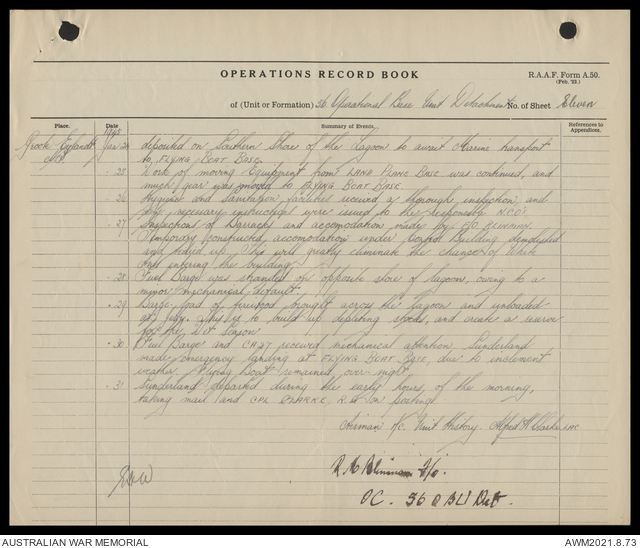 OPERATIONS RECORD BOOK
R.A.A.F. Form A.50.
(Feb. '23.)
of (Unit or Formation) 56 Operational Base Unit Detachment No. of Sheet Eleven
Place. Date Summary of Events. References to Appendices.
1945
Groote Eylandt Jan 24 deposited on Southern Shore of the Lagoon to await Marine transport
to FLYING BOAT BASE.
25 Work of moving Equipment from LAND PLANE BASE was continued, and
much gear was moved to FLYING BOAT BASE.
26 Hygiene and Sanitation facilities received a thorough inspection, and
any necessary instructions were issued to the responsible N.C.O's
27 Inspections of Barracks and accomodation made by F/O
Temporary constructed accomodation under Control Building demolished
and tidied up. This will greatly eliminate the chances of White
Ants entering the building.
28 Fuel Barge was stranded on opposite shore of lagoon, owing to a
minor mechanical default.
29 Barge load of firewood brought across the lagoon and unloaded
at jetty. This is to build up depleting stocks, and create a reserve
for the Wet Season
30 Fuel Barge and received mechanical attention. Sunderland
made emergency landing at FLYING BOAT BASE, due to inclement
weather. Flying Boat remained over-night
31 Sunderland departed during the early hours, of the morning,
taking mail and CPL CLARKE, R.S. on posting
Airman i/c. Unit History. Alfred H Clarke LAC
R. M. F/O.
OC. 56 OBU Det.
AUSTRALIAN WAR MEMORIAL
AWM2021.8.73